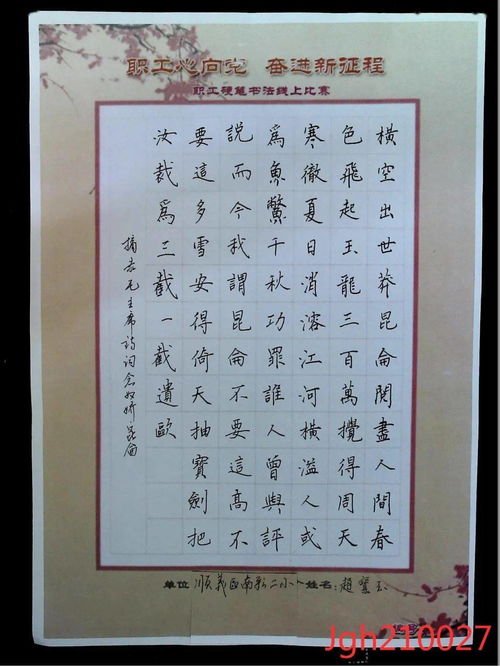 职工心向党 奋进新征程
职工硬笔书法线上比赛
橫空出世莽昆侖閱盡人間春
色飛起玉龍三百萬攪得周天
寒徹夏日消溶江河橫溢人或
爲魚鱉千秋功罪誰人曾與評
說而今我謂昆侖不要這高不
要這多雪安得倚天抽寶劍把
汝裁爲三截一截遺歐
摘录毛主席诗词念奴娇昆仑
单位 順義区南彩二小 姓名:趙玉
Jgh210027